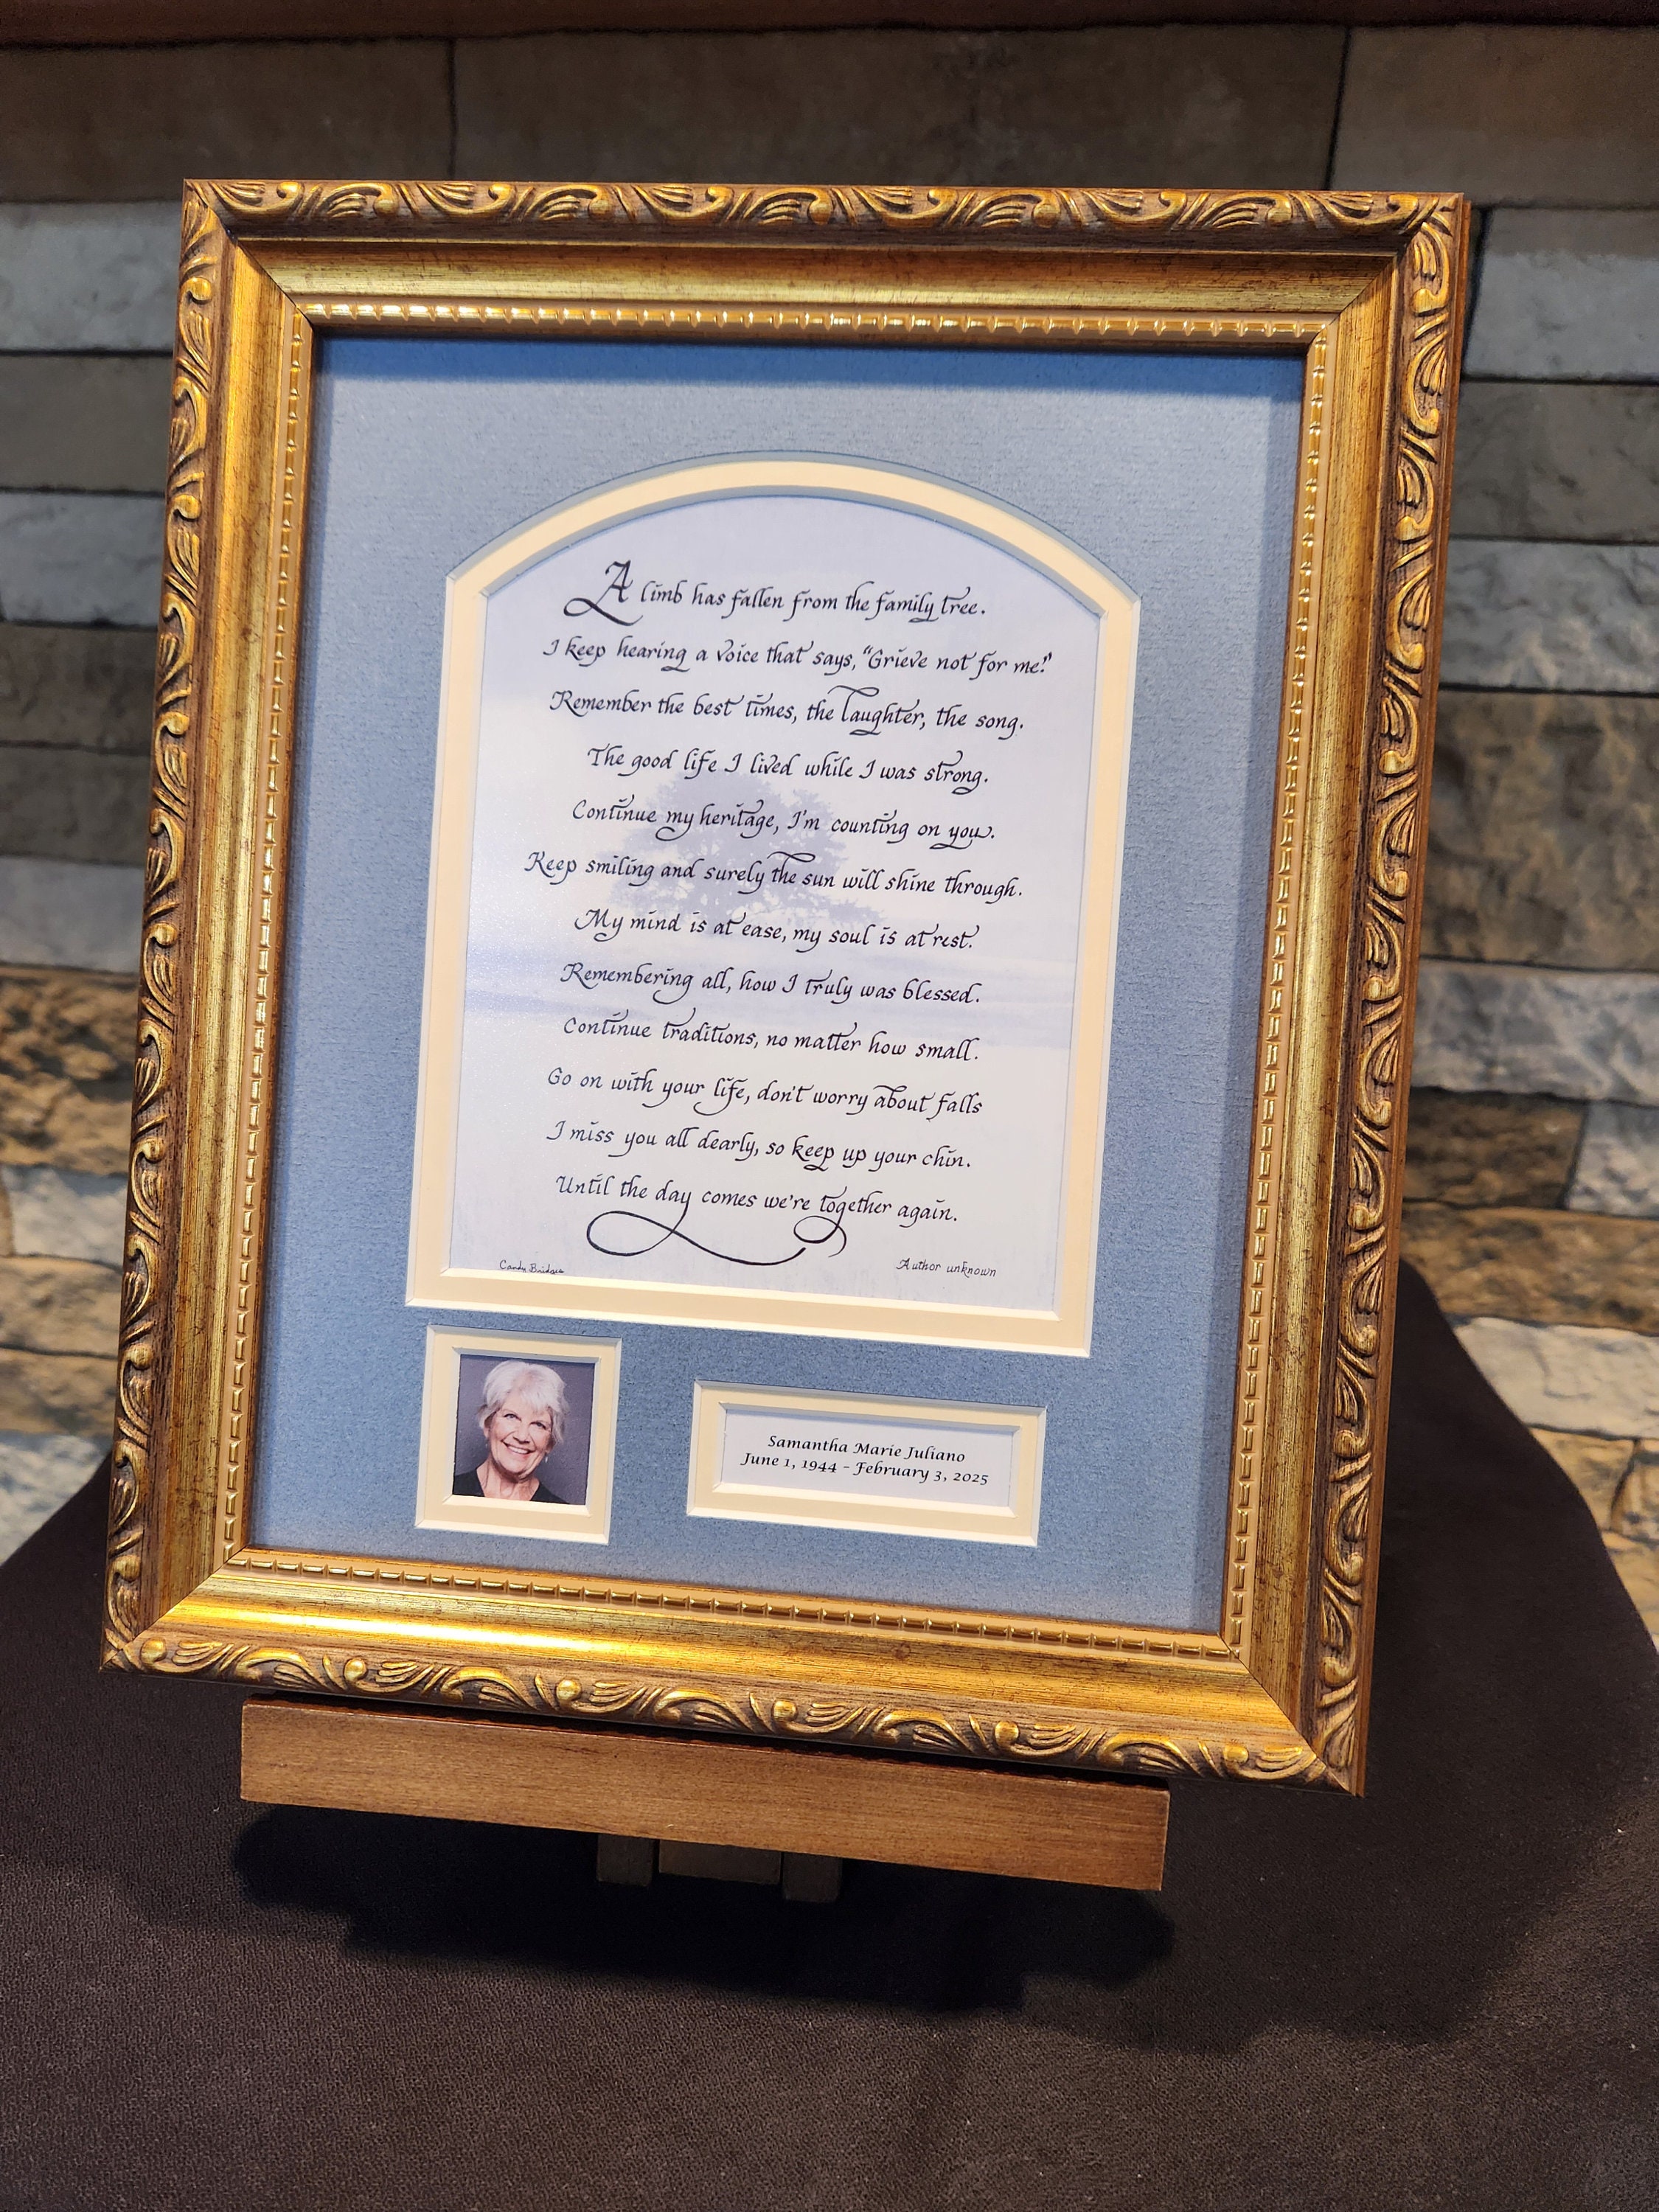 A limb has fallen from the family tree.
I keep hearing a voice that says, "Grieve not for me."
Remember the best times, the laughter, the song.
The good life I lived while I was strong.
Continue my heritage, I'm counting on you.
Keep smiling and surely the sun will shine through.
My mind is at ease, my soul is at rest.
Remembering all, how I truly was blessed.
Continue traditions, no matter how small.
Go on with your life, don't worry about falls
I miss you all dearly, so keep up your chin.
Until the day comes we're together again.
Candy Bridges
Author unknown
Samantha Marie Juliano
June 1, 1944 - February 3, 2025